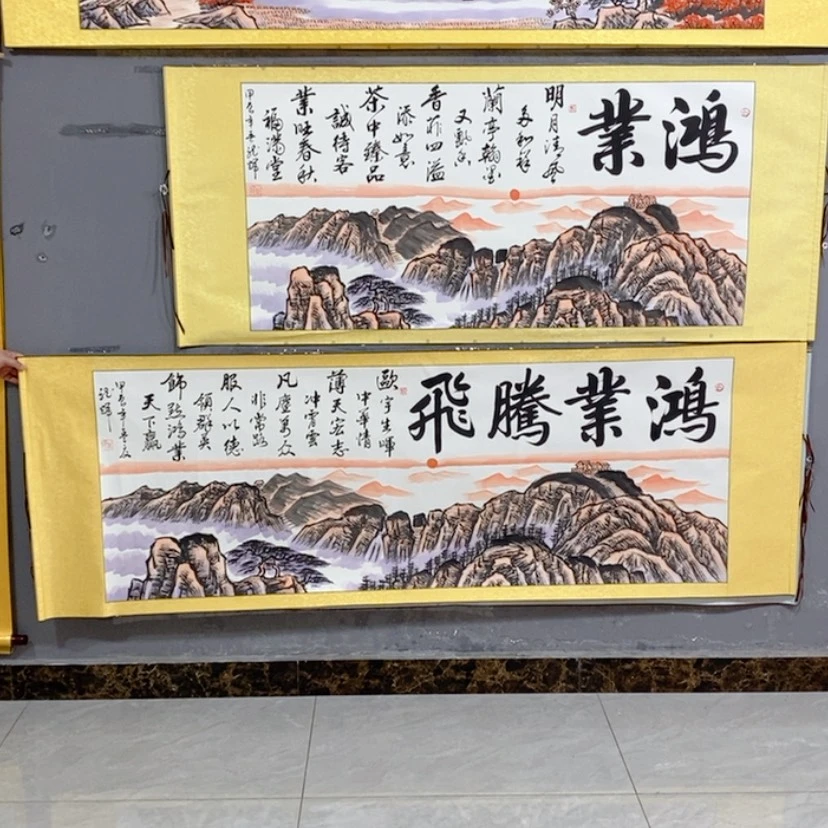 鴻業
明月清風
多和祥
蘭亭翰墨
又飄香
香菲四溢
添如意
茶中臻品
誠待客
業旺春秋
福滿堂
甲辰年
鴻業騰飛
歐宇生暉
中華情
薄天宏志
冲霄雲
凡塵萬众
非常路
服人以德
領群英
飾點鴻業
天下贏
甲辰年